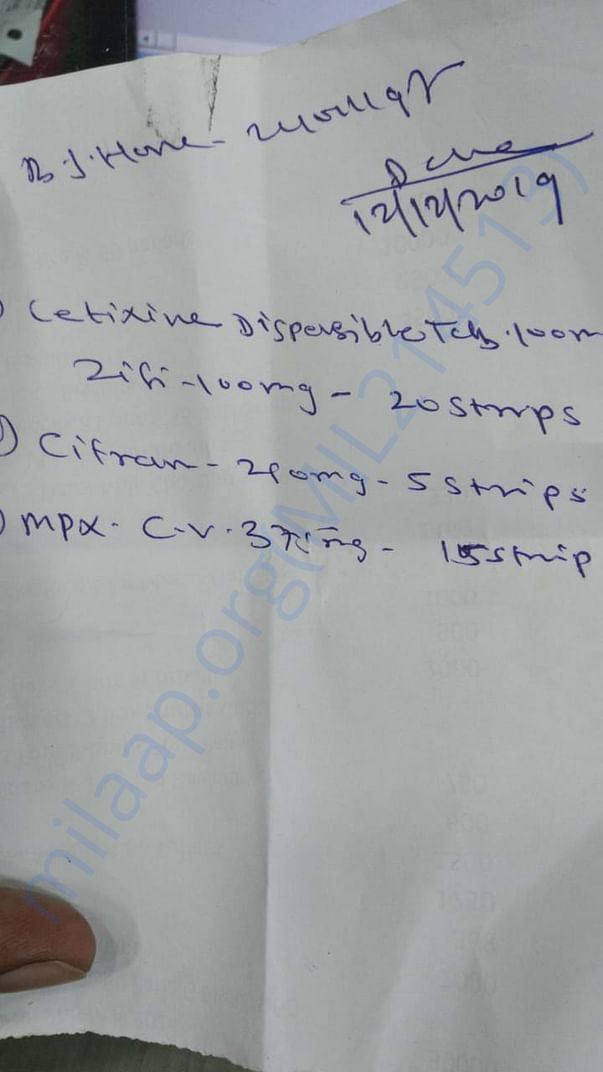 B.J. Home -
12/12/2019
Cefixime Dispersible Tab. 100m
Zifi - 100mg - 20 strips
Cifran - 250mg - 5 strips
MPX. C.V. 375mg - 15 strip
milaap.org(MIL214513)